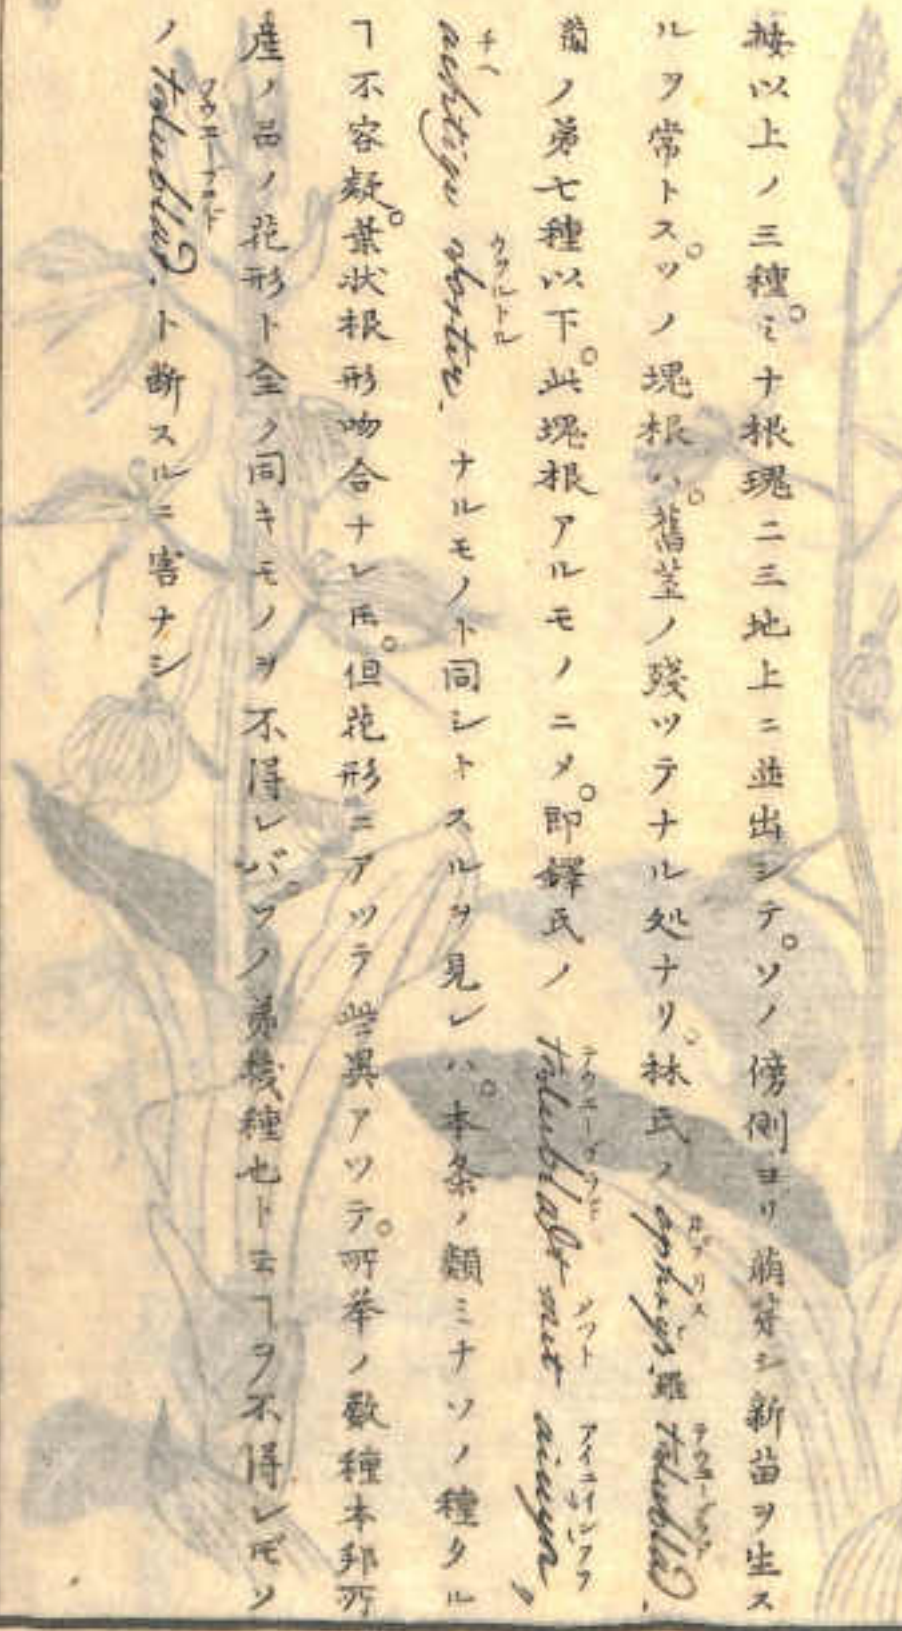 按以上ノ三種。ミナ根瑰二三地上ニ並出シテ。ソノ傍側ヨリ萠芽シ新苗ヲ生ス
ルヲ常トス。ソノ塊根ハ。舊莖ノ殘ツテナル処ナリ。林氏ノ ophrys. 羅 twublad.
蘭ノ弟七種以下。此塊根アルモノニ〆。即鐸氏ノ twublad met
achtige wortin. ナルモノト同シトスルヲ見レハ。本条ノ類ミナソノ種タル
ヿ不容疑。葉状根形吻合ナレ𪜈。但花形ニアツテ些異アツテ。所举ノ數種本邦所
産ノ品ノ花形ト全ク同キモノヲ不得レバ。ソノ弟幾種也トヱヿヲ不得レ𪜈ソ
ノ twublad. ト断スルニ害ナシ